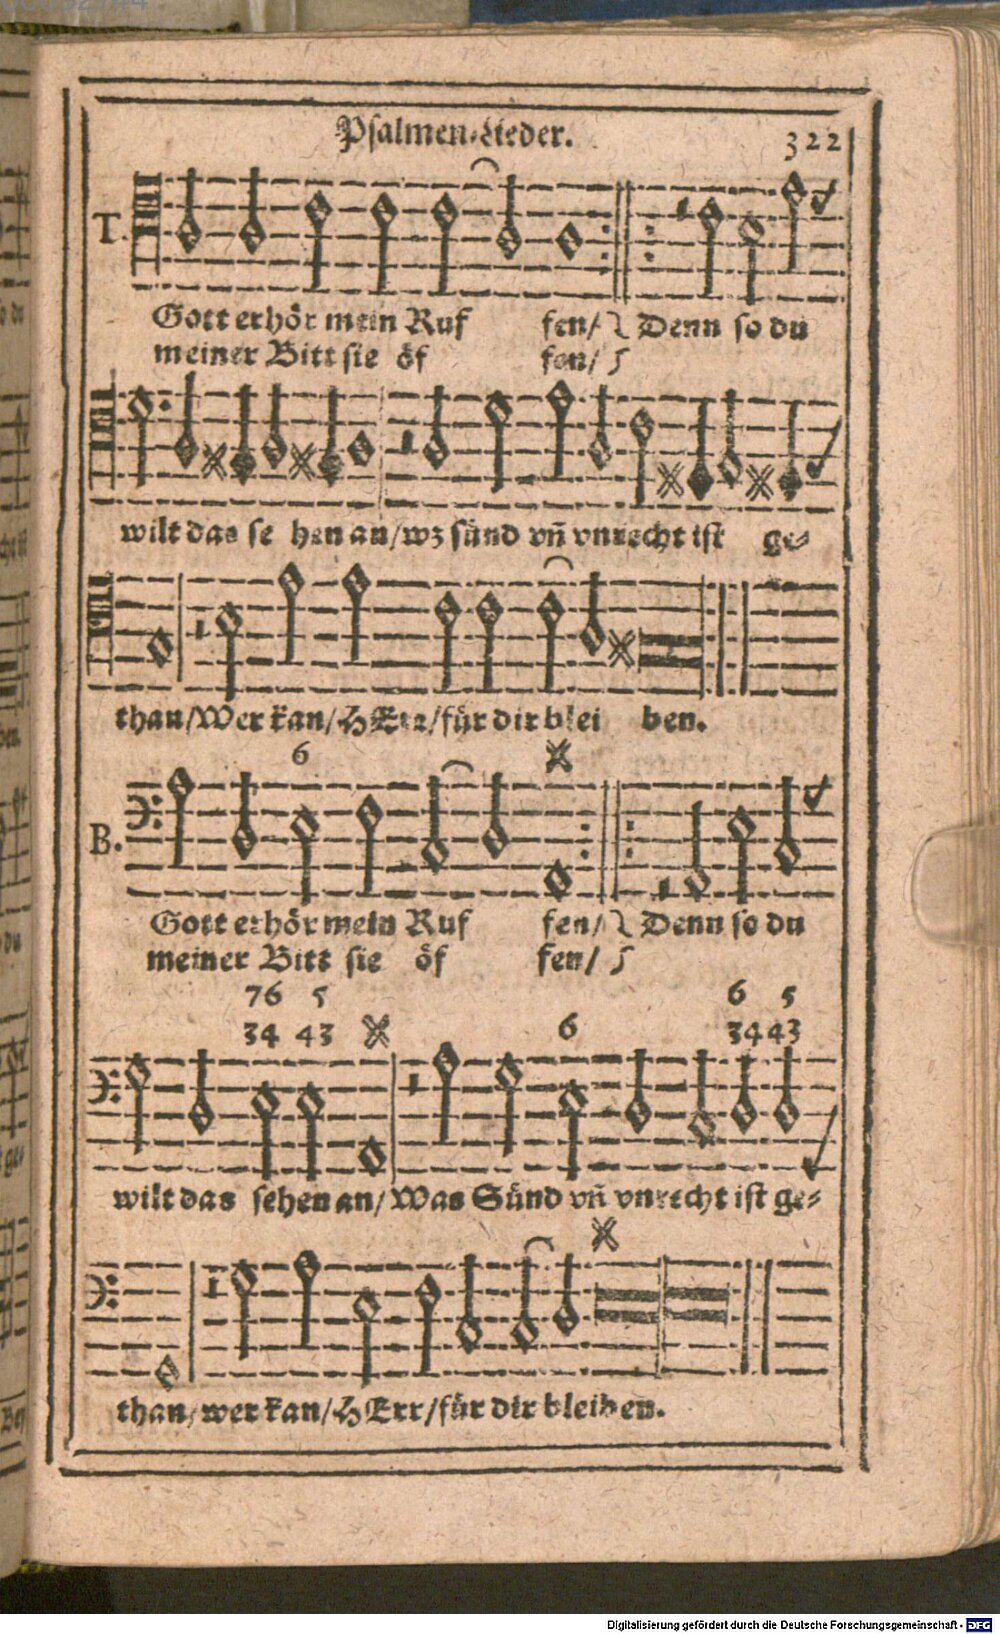 Psalmen-Lieder.
322
T.
Gott erhör mein Ruf fen/ Denn so du
meiner Bitt sie öf fen/
wilt das se hen an/wz sünd vn̄ vnrecht ist ge-
than/Wer kan/HErr/für dir blei ben.
6
B.
Gott erhör mein Ruf fen/ Denn so du
meiner Bitt sie öf fen/
76 5 6 5
34 43 6 34 43
wilt das sehen an/Was Sünd vn̄ vnrecht ist ge-
than/wer kan/HErr/für dir bleiben.
Digitalisierung gefördert durch die Deutsche Forschungsgemeinschaft - DFG